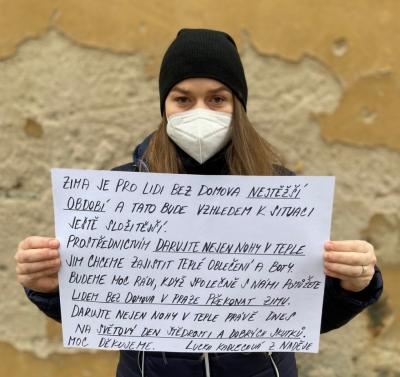 ZIMA JE PRO LIDI BEZ DOMOVA NEJTĚŽŠÍ
OBDOBÍ A TATO BUDE VZHLEDEM K SITUACI
JEŠTĚ SLOŽITĚJŠÍ.
PROSTŘEDNICTVÍM DARUJTE NEJEN NOHY V TEPLE
JIM CHCEME ZAJISTIT TEPLÉ OBLEČENÍ A BOTY.
BUDEME MOC RÁDI, KDYŽ SPOLEČNĚ S NÁMI POMŮŽETE
LIDEM BEZ DOMOVA V PRAZE PŘEKONAT ZIMU.
DARUJTE NEJEN NOHY V TEPLE PRÁVĚ DNES
NA SVĚTOVÝ DEN ŠTĚDROSTI A DOBRÝCH SKUTKŮ.
MOC DĚKUJEME. LUCKA KADLECOVÁ Z NADĚJE